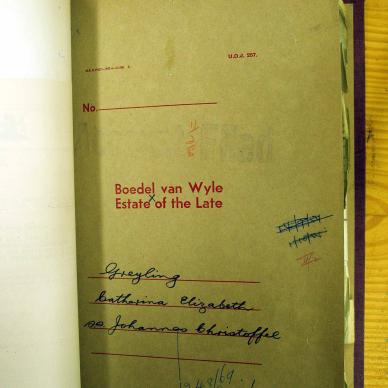 U.D.J. 257.
No.
Boedel van Wyle
Estate of the Late
Greyling
Catharina Elizabeth
Johannes Christoffel
1948/69